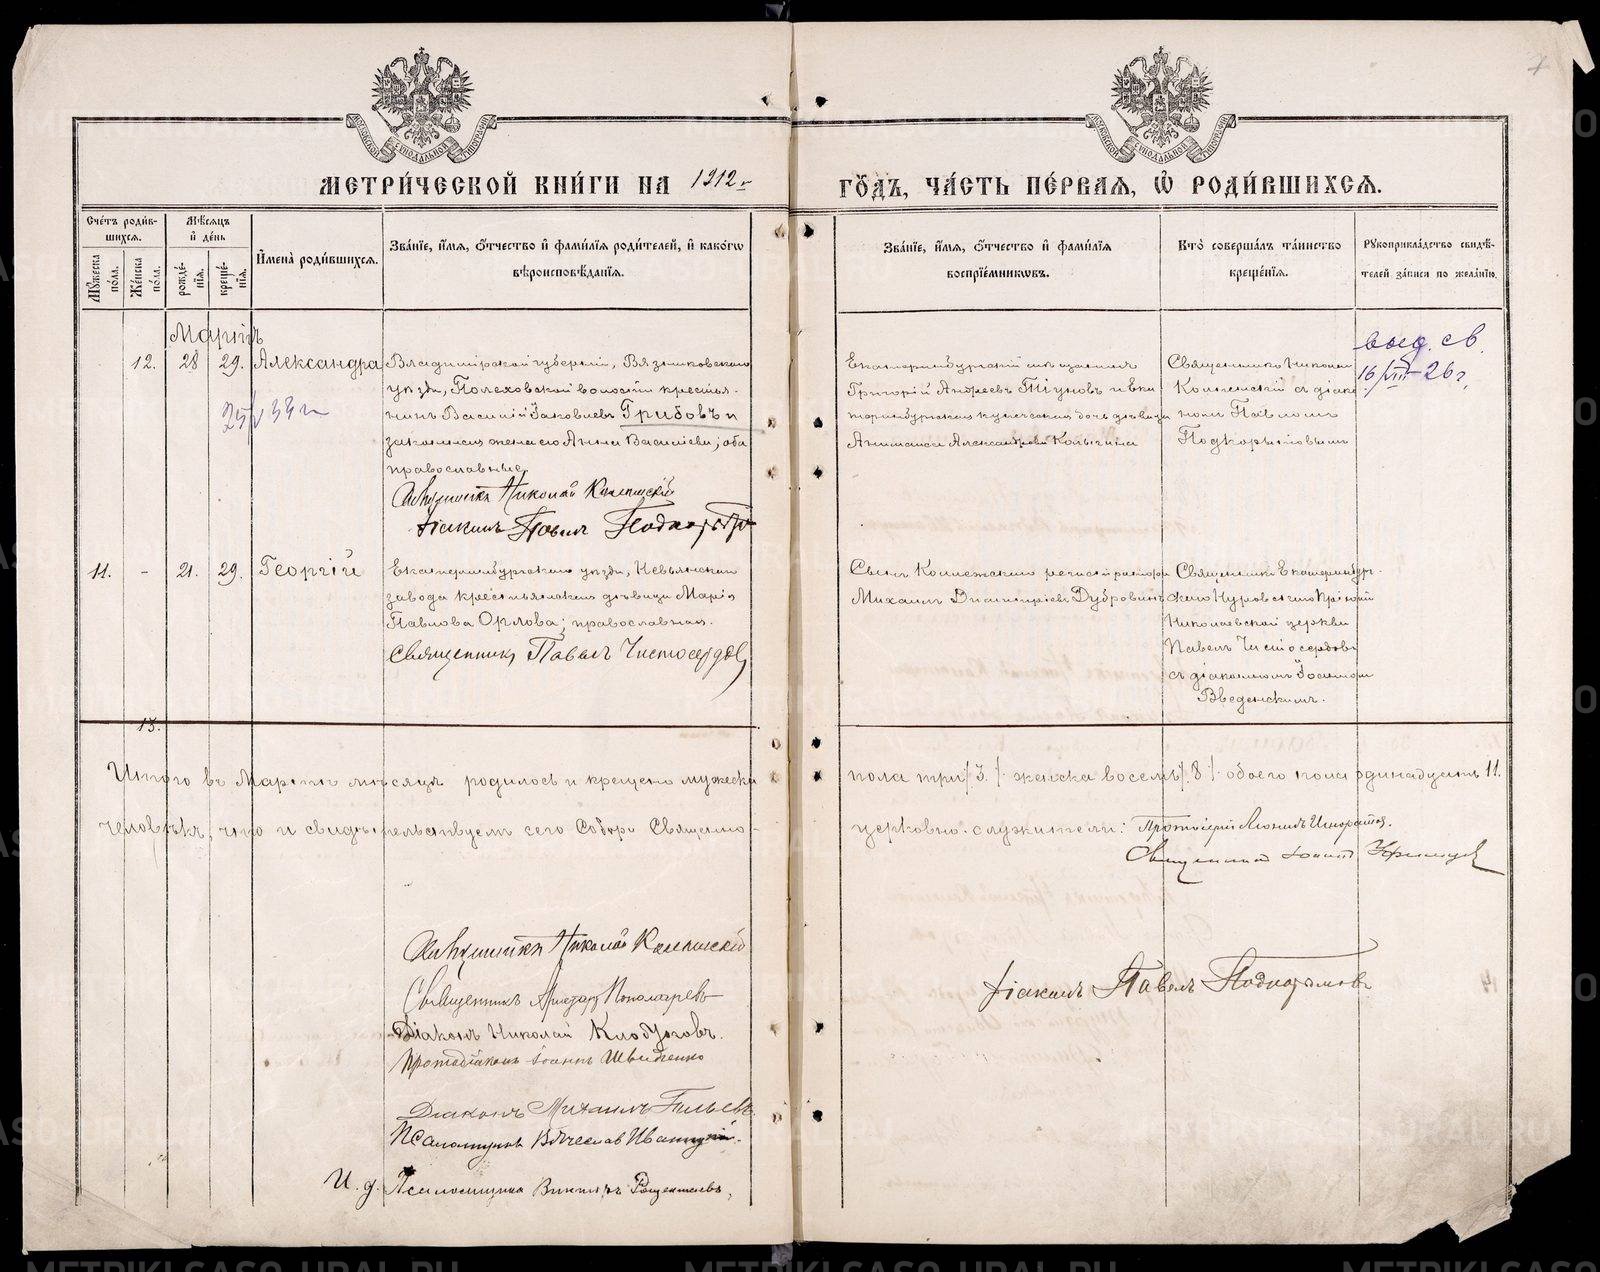 МОСКОВСКОЙ СѴНОДАЛЬНОЙ ТИПОГРАФІИ
МОСКОВСКОЙ СѴНОДАЛЬНОЙ ТИПОГРАФІИ
7
МЕТРИ́ЧЕСКОЙ КНИ́ГИ НА 1912 г.
ГО́ДЪ, ЧА́СТЬ ПЕ́РВАЯ, Ѡ РОДИ́ВШИХСЯ.
Сче́тъ роди́в-
шихся.
Мѣ́сяцъ
и҆ де́нь
Му́жеска
по́ла.
Же́нска
по́ла.
рожде́-
нїя.
креще́-
нїя.
И҆мена̀ роди́вшихся.
Зва́нїе, и҆́мя, ѻ҆́тчество и҆ фами́лїя роди́телей, и҆ како́гѡ
вѣроисповѣ́данїя.
Зва́нїе, и҆́мя, ѻ҆́тчество и҆ фами́лїя
воспрїе́мникѡвъ.
Кто̀ соверша́лъ та́инство
креще́нїя.
Рукоприкла́дство свидѣ́-
телей за́писи по жела́нїю.
Мартъ
12. 28 29. Александра
Владимірской губерніи, Вязниковскаго
уѣзда, Полеховской волости крестья-
нинъ Василій Іаковлевъ Грибовъ и
законная жена его Анна Васильева; оба
православные.
Священникъ Николай
Діаконъ Павелъ
Екатеринбургскій мѣщанинъ
Григорій Андреевъ Тіуновъ и Ека-
теринбургская купеческая дочь дѣвица
Александрова
Священникъ Николай
съ діако-
номъ Павломъ
Подкорытовымъ
выд. св.
16/VIII-26 г.
11. - 21. 29. Георгій
Екатеринбургскаго уѣзда, Невьянскаго
завода крестьянская дѣвица Марія
Павлова Орлова; православная.
Священникъ Павелъ Чистосердовъ
Сынъ Коллежскаго регистратора
Михаилъ Димитріевъ Дубровинъ
Священникъ Екатеринбург-
Николаевской церкви
Павелъ Чистосердовъ
съ діакономъ
Введенскимъ.
13.
Итого въ Мартѣ мѣсяцѣ родилось и крещено мужеска
пола три /3/ женска восемь /8/ обоего пола одинадцать 11.
человѣкъ, что и свидѣтельствуемъ сего Собора Священно-
церковно-служители: Протоіерей
Священникъ Іоаннъ
Священникъ Николай
Священникъ Пономаревъ
Діаконъ Николай
Протодіаконъ Іоаннъ Швиденко
Діаконъ Михаилъ
Псаломщикъ Вячеславъ
И. д. Псаломщика Викторъ
Діаконъ Павелъ Подкорытовъ